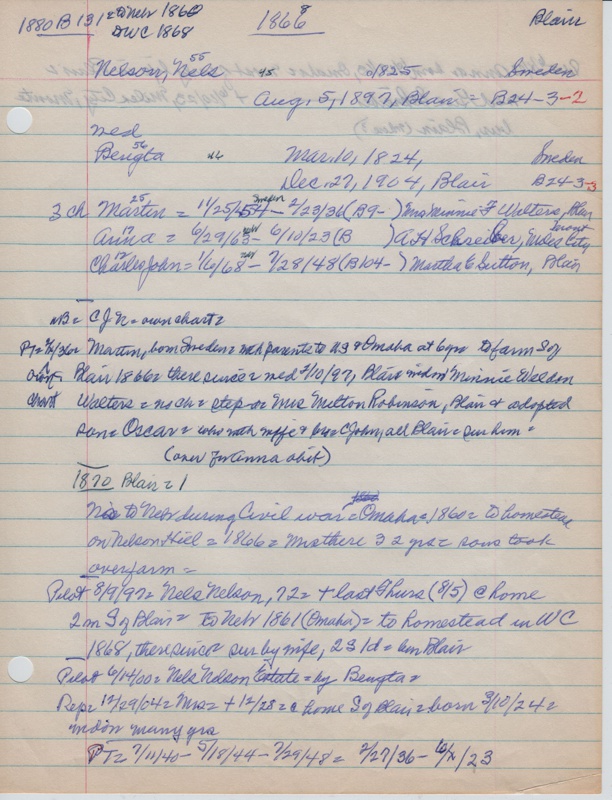 1880 B 131 = to Nebr 1860 1866 8 Blair
DWC 1868
Nelson, Nels 55 1825 Sweden
Aug. 5, 1897, Blair = B24-3-2
med
Bengta 56 Mar. 10, 1824, Sweden
Dec. 27, 1904, Blair B24-3-3
3 ch Martin 25 = 11/25/54 Sweden - 2/23/36 (B9- ) Mrs Minnie F Walters, Blair
Anna 17 = 6/29/63 - 6/10/23 (B ) A H Schreiber, Miles City Mont
Charles John 12 = 1/6/68 - 7/28/48 (B104- ) Martha E Sutton, Blair
NB = C J N = own chart =
PT = Martin, born Sweden = with parents to US & Omaha at 6 yrs to farm S of
Blair 1866 = there since = med 2/10/97, Blair Minnie Weldon
chart Walters = no ch = step da Mrs Milton Robinson, Blair & adopted
son = Oscar = with wife & bro = C John, all Blair = sur him =
(over for Anna obit)
1870 Blair = 1
N to Nebr during Civil war = Omaha = 1860 = to homestead
on Nelson Hill = 1866 = Mrs there 32 yrs = sons took
over farm =
Pilot 8/9/97 = Nels Nelson, 72 = + last Thurs (8/5) @ home
2 m S of Blair = to Nebr 1861 (Omaha) = to homestead in WC
1868, there since sur by wife, 2 S 1 d = bur Blair
Pilot 6/14/00 = Nels Nelson Estate = by Bengta =
Rep = 12/29/04 = Mrs = + 12/28 = @ home S of Blair = born 3/10/24 =
many yrs
PT = 7/11/40 - 5/18/44 - 7/29/48 = 2/27/36 - /23